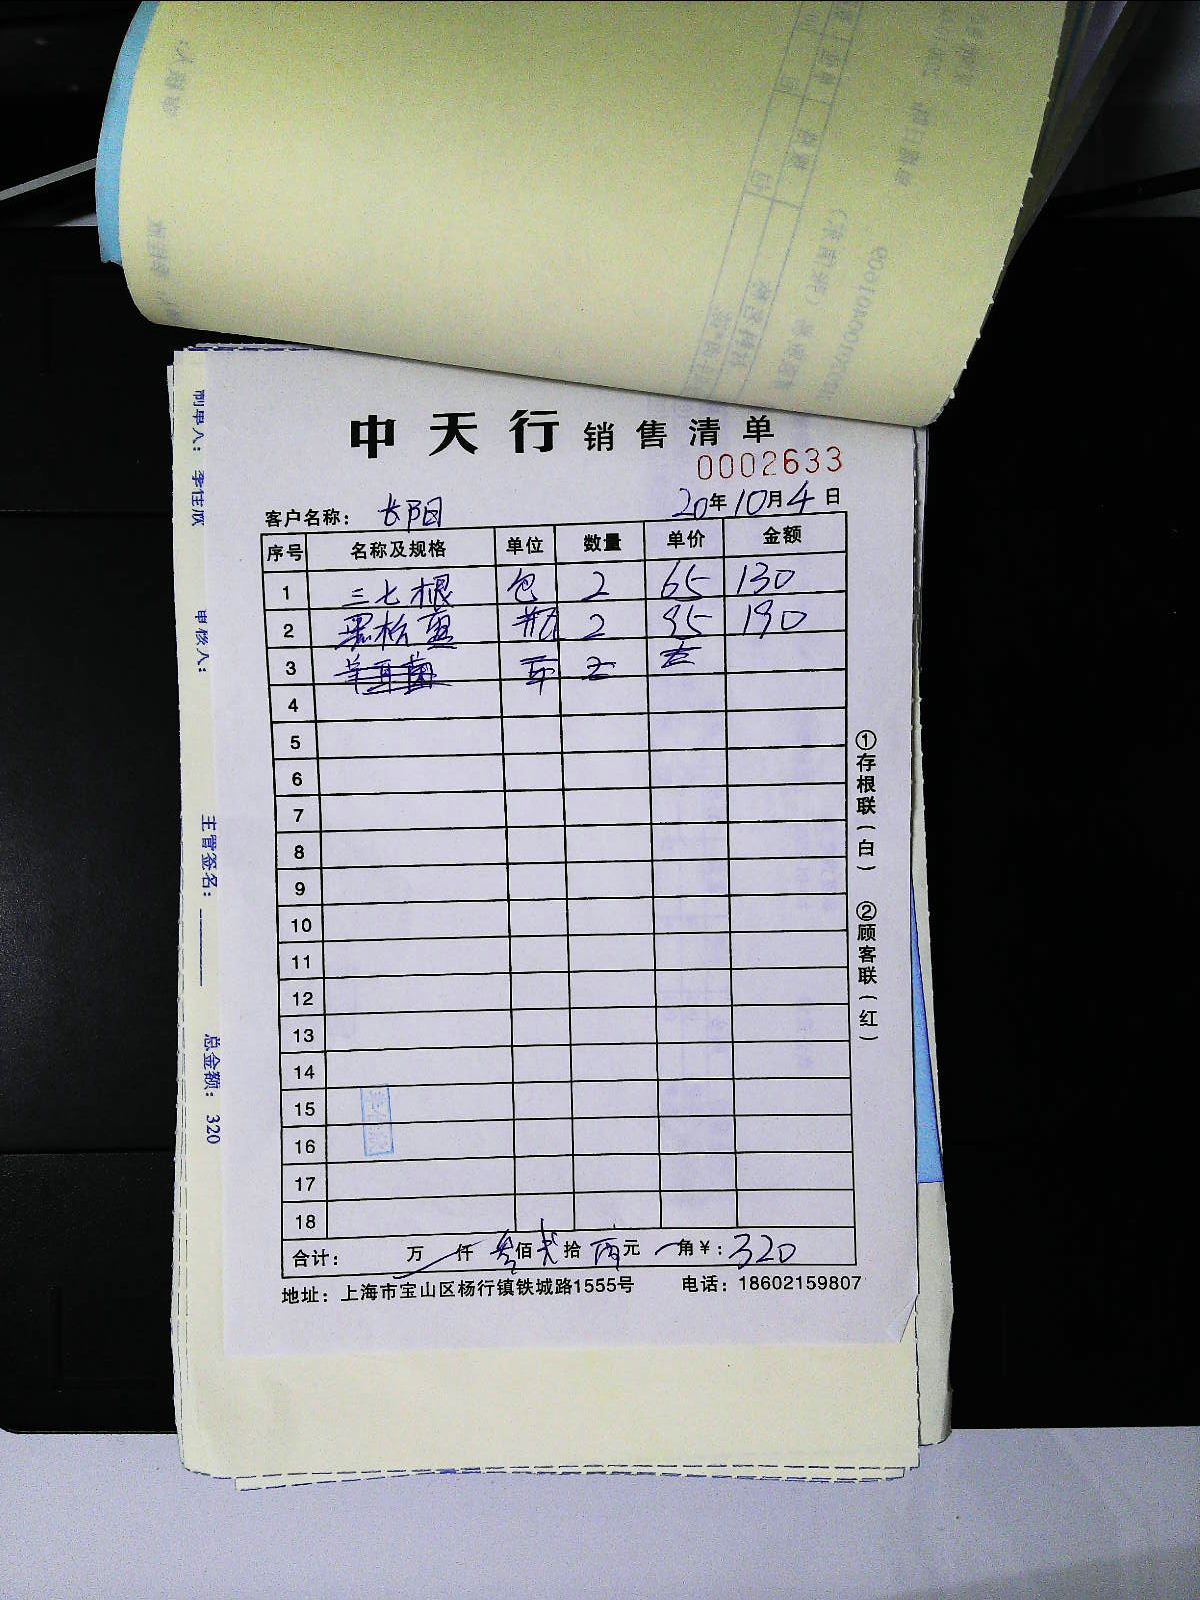 中天行 销售清单
0002633
客户名称： 长阳 20年10月4日
序号 名称及规格 单位 数量 单价 金额
1 三七根 包 2 65 130
2 黑松露 瓶 2 95 190
3
4
5
6
7
8
9
10
11
12
13
14
15
16
17
18
合计： 万 仟 叁佰贰拾 元 角￥：320
地址：上海市宝山区杨行镇铁城路1555号 电话：18602159807
①存根联（白） ②顾客联（红）
制单人： 李佳欣 审核人： 主管签名： 总金额： 320